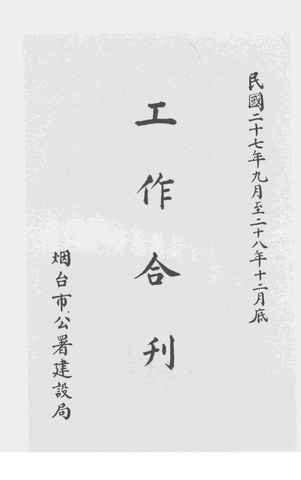 民國二十七年九月至二十八年十二月底
工作合刊
烟台市公署建設局